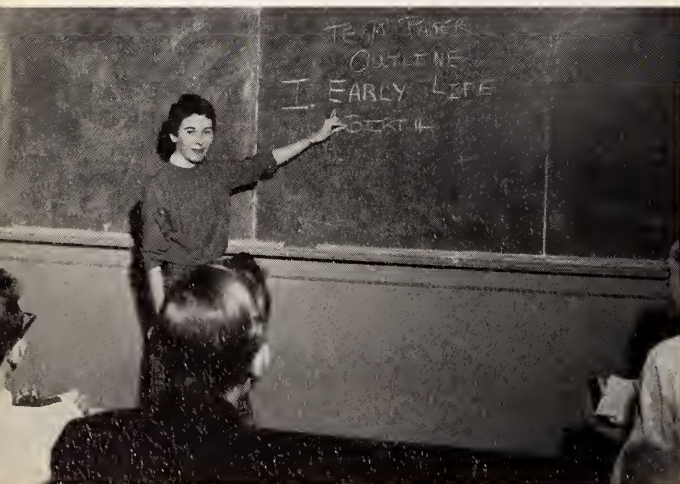 TERM PAPER
OUTLINE
I. EARLY LIFE
BIRTH